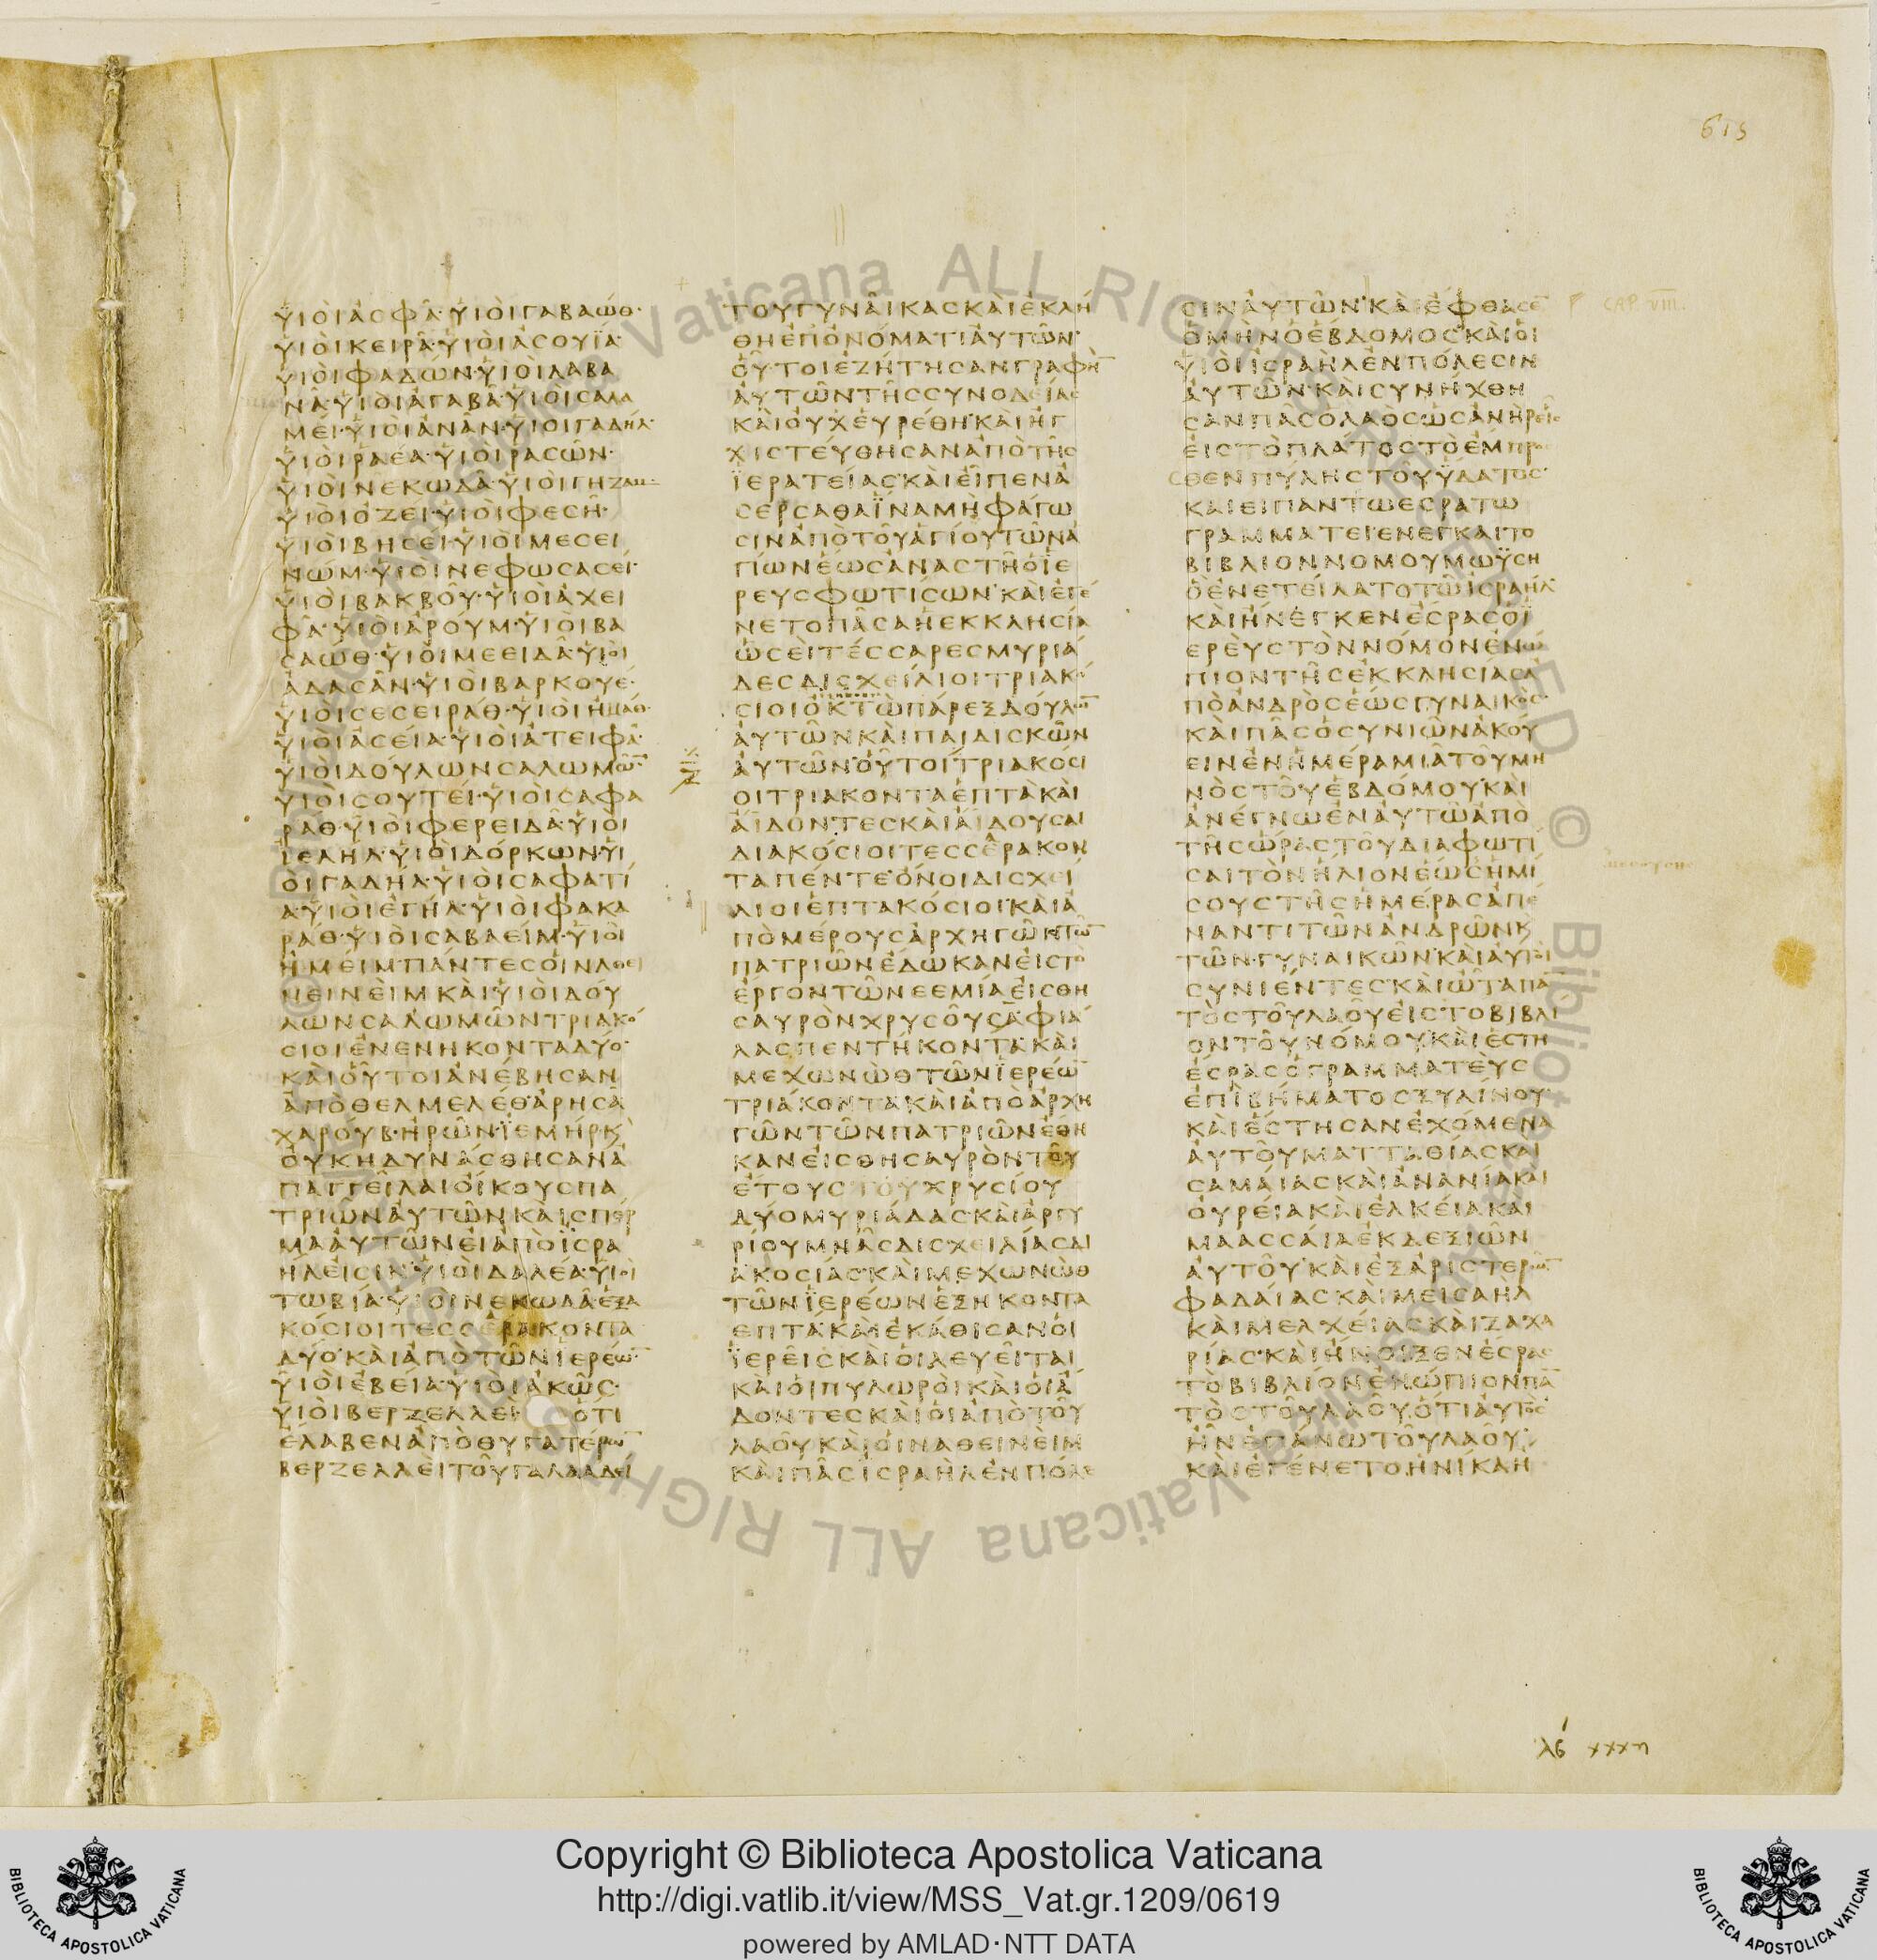 615
ὙΙΟῚΑΣΦΑ·ὙΙΟῚΓΑΒΑΩΘ·
ὙΙΟῚΚΕΙΡΑ·ὙΙΟῚΑΣΟΥΙΑ·
ὙΙΟῚΦΑΔΩΝ·ὙΙΟῚΛΑΒΑ
ΝΑ·ὙΙΟῚΑΓΑΒΑ·ὙΙΟῚΣΑΜΑ
ΜΕΙ·ὙΙΟῚΑΝΑΝ·ὙΙΟῚΓΑΔΗΛ·
ὙΙΟῚΡΑΕΑ·ὙΙΟῚΡΑΣΩΝ·
ὙΙΟῚΝΕΚΩΔΑ·ὙΙΟῚΓΗΖΑΜ·
ὙΙΟῚΟΖΕΙ·ὙΙΟῚΦΕΣΗ·
ὙΙΟῚΒΗΣΕΙ·ὙΙΟῚΜΕΣΕΙ
ΝΩΜ·ὙΙΟῚΝΕΦΩΣΑΣΕΙ·
ὙΙΟῚΒΑΚΒΟΥ·ὙΙΟῚΑΧΕΙ
ΦΑ·ὙΙΟῚΑΡΟΥΜ·ὙΙΟῚΒΑ
ΣΑΩΘ·ὙΙΟῚΜΕΕΙΔΑ·ὙΙΟῚ
ΑΔΑΣΑΝ·ὙΙΟῚΒΑΡΚΟΥΕ·
ὙΙΟῚΣΕΣΕΙΡΑΘ·ὙΙΟῚΗΜΑΘ·
ὙΙΟῚΑΣΕΙΑ·ὙΙΟῚΑΤΕΙΦΑ·
ὙΙΟῚΔΟΥΛΩΝΣΑΛΩΜΩ̄·
ὙΙΟῚΣΟΥΤΕΙ·ὙΙΟῚΣΑΦΑ
ΡΑΘ·ὙΙΟῚΦΕΡΕΙΔΑ·ὙΙΟῚ
ΙΕΛΗΛ·ὙΙΟῚΔΟΡΚΩΝ·ὙΙ
ΟῚΓΑΔΗΛ·ὙΙΟῚΣΑΦΑΤΙ
Α·ὙΙΟῚΕΓΗΛ·ὙΙΟῚΦΑΚΑ
ΡΑΘ·ὙΙΟῚΣΑΒΑΕΙΜ·ὙΙΟῚ
ΗΜΕΙΜ·ΠΑΝΤΕΣΟΙΝΑΘΕΙ
ΝΕΙΝΕΙΜΚΑΙΥΙΟΙΔΟΥ
ΛΩΝΣΑΛΩΜΩΝΤΡΙΑΚΟ
ΣΙΟΙΕΝΕΝΗΚΟΝΤΑΔΥΟ·
ΚΑΙΟΥΤΟΙΑΝΕΒΗΣΑΝ
ΑΠΟΘΕΛΜΕΛΕΘΑΡΗΣΑ
ΧΑΡΟΥΒ·ΗΡΩΝ·ΪΕΜΗΡΚ̀
ΟΥΚΗΔΥΝΑΣΘΗΣΑΝΑ
ΠΑΓΓΕΙΛΑΙΟΙΚΟΥΣΠΑ
ΤΡΙΩΝΑΥΤΩΝΚΑΙΣΠΕΡ
ΜΑΑΥΤΩΝΕΙΑΠΟΪΣΡΑ
ΗΛΕΙΣΙΝ·ὙΙΟῚΔΑΛΕΑ·ὙΙΟῚ
ΤΩΒΙΑ·ὙΙΟΙΝΕΚΩΔΑ·ΕΞΑ
ΚΟΣΙΟΙΤΕΣΣΕΡΑΚΟΝΤΑ
ΔΥΟ·ΚΑΙΑΠΟΤΩΝΙΕΡΕΩ̄
ὙΙΟῚΕΒΕΙΑ·ὙΙΟῚΑΚΩΣ·
ΥΙΟῚΒΕΡΖΕΛΛΕΙ ΟΤΙ
ΕΛΑΒΕΝΑΠΟΘΥΓΑΤΕΡΩ̄
ΒΕΡΖΕΛΛΕΙΤΟΥΓΑΛΑΑΔΕΙ
ΤΟΥΓΥΝΑΙΚΑΣΚΑΙΕΚΛΗ
ΘΗΕΠΟΝΟΜΑΤΙΑΥΤΩΝ·
ΟΥΤΟΙΕΖΗΤΗΣΑΝΓΡΑΦΗ̄
ΑΥΤΩΝΤΗΣΣΥΝΟΔΕΙΑΣ
ΚΑΙΟΥΧΕΥΡΕΘΗ·ΚΑΙΗΓ
ΧΙΣΤΕΥΘΗΣΑΝΑΠΟΤΗΣ
ΪΕΡΑΤΕΙΑΣ·ΚΑΙΕΙΠΕΝΑ
ΣΕΡΣΑΘΑΪΝΑΜΗΦΑΓΩ
ΣΙΝΑΠΟΤΟΥΑΓΙΟΥΤΩΝΑ
ΓΙΩΝΕΩΣΑΝΑΣΤΗΟΪΕ
ΡΕΥΣΦΩΤΙΣΩΝ·ΚΑΙΕΓΕ
ΝΕΤΟΠΑΣΑΗΕΚΚΛΗΣΙΑ
ΩΣΕΙΤΕΣΣΑΡΕΣΜΥΡΙΑ
ΔΕΣΔΙΣΧΕΙΛΙΟΙΤΡΙΑΚΟ
ΣΙΟΙΟΚΤΩΠΑΡΕΞΔΟΥΛΩ̄
ΑΥΤΩΝΚΑΙΠΑΙΔΙΣΚΩΝ
ΑΥΤΩΝ·ΟΥΤΟΙΤΡΙΑΚΟΣΙ
ΟΙΤΡΙΑΚΟΝΤΑΕΠΤΑΚΑΙ
ΑΙΔΟΝΤΕΣΚΑΙΑΙΔΟΥΣΑΙ
ΔΙΑΚΟΣΙΟΙΤΕΣΣΕΡΑΚΟΝ
ΤΑΠΕΝΤΕ·ΟΝΟΙΔΙΣΧΕΙ
ΛΙΟΙΕΠΤΑΚΟΣΙΟΙ·ΚΑΙΑ
ΠΟΜΕΡΟΥΣΑΡΧΗΓΩΝΤΩ̄
ΠΑΤΡΙΩΝΕΔΩΚΑΝΕΙΣΤΟ
ΕΡΓΟΝΤΩΝΕΕΜΙΑΕΙΣΘΗ
ΣΑΥΡΟΝΧΡΥΣΟΥΣᾹΦΙΑ
ΛΑΣΠΕΝΤΗΚΟΝΤΑΚΑΙ
ΜΕΧΩΝΩΘΤΩΝΪΕΡΕΩ̄
ΤΡΙΑΚΟΝΤΑ·ΚΑΙΑΠΟΑΡΧΗ
ΓΩΝΤΩΝΠΑΤΡΙΩΝΕΘΗ
ΚΑΝΕΙΣΘΗΣΑΥΡΟΝΤΟΥ
ΕΤΟΥΣΤΟΥΧΡΥΣΙΟΥ
ΔΥΟΜΥΡΙΑΔΑΣ·ΚΑΙΑΡΓΥ
ΡΙΟΥΜΝΑΣΔΙΣΧΕΙΛΙΑΣΔΙ
ΑΚΟΣΙΑΣ·ΚΑΙΜΕΧΩΝΩΘ
ΤΩΝΪΕΡΕΩΝΕΞΗΚΟΝΤΑ
ΕΠΤΑ·ΚΑΙΕΚΑΘΙΣΑΝΟΙ
ΪΕΡΕΙΣΚΑΙΟΙΛΕΥΕΙΤΑΙ
ΚΑΙΟΙΠΥΛΩΡΟΙΚΑΙΟΙΑ
ΔΟΝΤΕΣΚΑΙΟΙΑΠΟΤΟΥ
ΛΑΟΥΚΑΙΟΙΝΑΘΕΙΝΕΙΜ
ΚΑΙΠΑΣΙΣΡΑΗΛΕΝΠΟΛΕ
ΣΙΝΑΥΤΩΝ·ΚΑΙΕΦΘΑΣΕ̄
ΟΜΗΝΟΕΒΔΟΜΟΣΚΑΙΟΙ
ΥΙΟΙΙΣΡΑΗΛΕΝΠΟΛΕΣΙΝ
ΑΥΤΩΝ·ΚΑΙΣΥΝΗΧΘΗ
ΣΑΝΠΑΣΟΛΑΟΣΩΣΑΝΗΡΕΙΣ
ΕΙΣΤΟΠΛΑΤΟΣΤΟΕΜΠΡΟ
ΣΘΕΝΠΥΛΗΣΤΟΥΫΔΑΤΟΣ·
ΚΑΙΕΙΠΑΝΤΩΕΣΡΑΤΩ
ΓΡΑΜΜΑΤΕΙΕΝΕΓΚΑΙΤΟ
ΒΙΒΛΙΟΝΝΟΜΟΥΜΩΫΣΗ
ΟΕΝΕΤΕΙΛΑΤΟΤΩΙΣΡΑΗΛ·
ΚΑΙΗΝΕΓΚΕΝΕΣΡΑΣΟΪ
ΕΡΕΥΣΤΟΝΝΟΜΟΝΕΝΩ
ΠΙΟΝΤΗΣΕΚΚΛΗΣΙΑΣΑ
ΠΟΑΝΔΡΟΣΕΩΣΓΥΝΑΙΚΟΣ·
ΚΑΙΠΑΣΟΣΥΝΙΩΝΑΚΟΥ
ΕΙΝΕΝΗΜΕΡΑΜΙΑΤΟΥΜΗ
ΝΟΣΤΟΥΕΒΔΟΜΟΥ·ΚΑΙ
ΑΝΕΓΝΩΕΝΑΥΤΩΑΠΟ
ΤΗΣΩΡΑΣΤΟΥΔΙΑΦΩΤΙ
ΣΑΙΤΟΝΗΛΙΟΝΕΩΣΗΜΙ
ΣΟΥΣΤΗΣΗΜΕΡΑΣΑΠΕ
ΝΑΝΤΙΤΩΝΑΝΔΡΩΝΚ̀
ΤΩΝ·ΓΥΝΑΙΚΩΝ·ΚΑΙΑΥΤΟΙ
ΣΥΝΙΕΝΤΕΣ·ΚΑΙΩΤΑΠᾹ
ΤΟΣΤΟΥΛΑΟΥΕΙΣΤΟΒΙΒΛΙ
ΟΝΤΟΥΝΟΜΟΥ·ΚΑΙΕΣΤΗ
ΕΣΡΑΣΟΓΡΑΜΜΑΤΕΥΣ
ΕΠΙΒΗΜΑΤΟΣΞΥΛΙΝΟΥ·
ΚΑΙΕΣΤΗΣΑΝΕΧΟΜΕΝΑ
ΑΥΤΟΥΜΑΤΤΑΘΙΑΣΚΑΙ
ΣΑΜΑΙΑΣΚΑΙΑΝΑΝΙΑΚΑΙ
ΟΥΡΕΙΑΚΑΙΕΛΚΕΙΑΚΑΙ
ΜΑΑΣΣΑΙΑΕΚΔΕΞΙΩΝ
ΑΥΤΟΥ·ΚΑΙΕΞΑΡΙΣΤΕΡΩ̄
ΦΑΔΑΙΑΣΚΑΙΜΕΙΣΑΗΛ
ΚΑΙΜΕΛΧΕΙΑΣΚΑΙΖΑΧΑ
ΡΙΑΣ·ΚΑΙΗΝΟΙΞΕΝΕΣΡΑΣ
ΤΟΒΙΒΛΙΟΝΕΝΩΠΙΟΝΠᾹ
ΤΟΣΤΟΥΛΑΟΥ·ΟΤΙΑΥΤΟΣ
ΗΝΕΠΑΝΩΤΟΥΛΑΟΥ·
ΚΑΙΕΓΕΝΕΤΟΗΝΙΚΑΗ
CAP. VIII.
λϛ xxxvi
Copyright © Biblioteca Apostolica Vaticana
http://digi.vatlib.it/view/MSS_Vat.gr.1209/0619
powered by AMLAD·NTT DATA
BIBLIOTECA APOSTOLICA VATICANA
BIBLIOTECA APOSTOLICA VATICANA